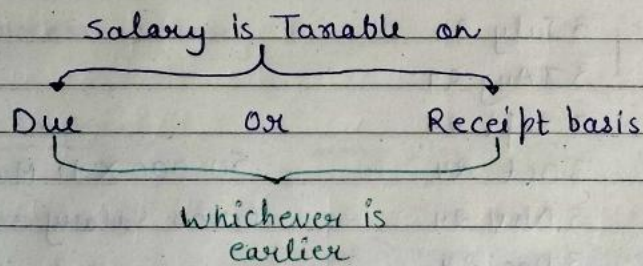 Salary is Taxable on
Due or Receipt basis
whichever is
earlier